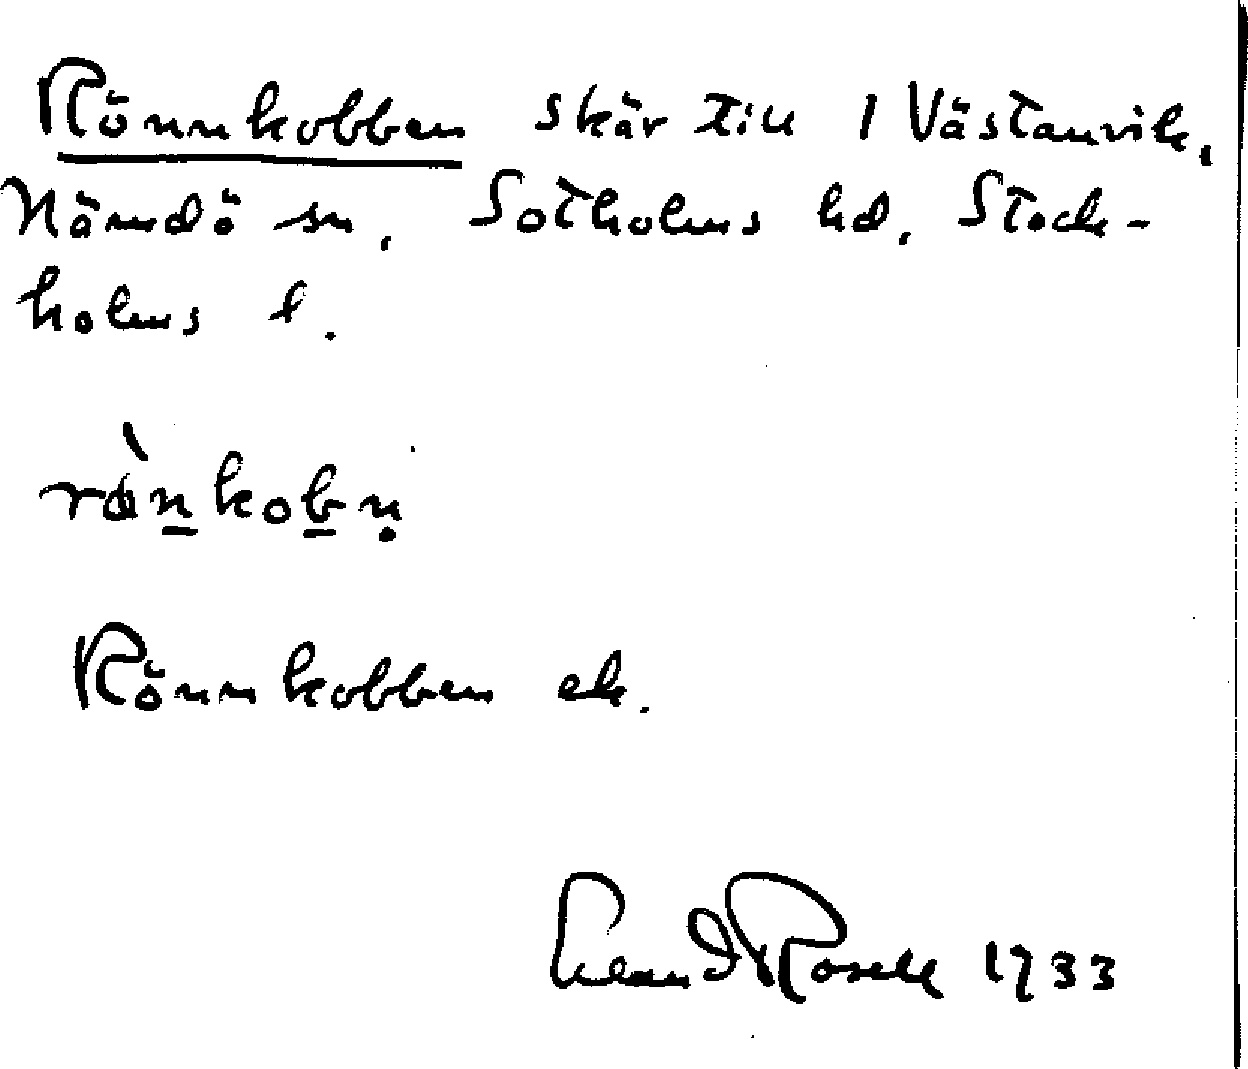 Rönnkobben skär till 1 Västanvik,
Nämdö sn, Sotholms hd, Stock-
holms l.
rö̀nkobn̥
Rönnkobben ek.
Rosell 1933